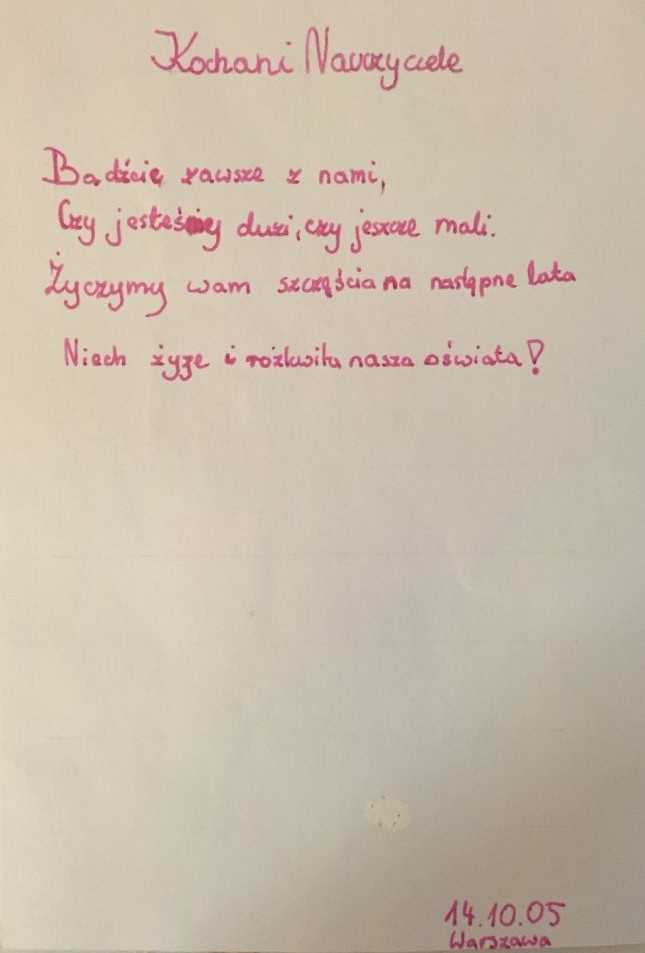 Kochani Nauczyciele
Bądźcię zawsze z nami,
Czy jesteśmy duzi, czy jeszcze mali.
Życzymy wam szczęścia na następne lata
Niech żyję i rozkwita nasza oświata!
14.10.05
Warszawa